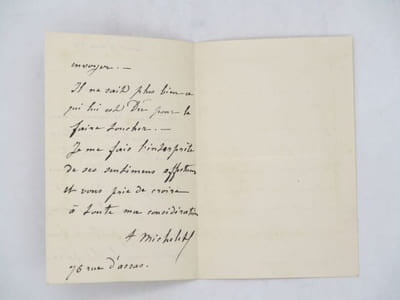 envoyer. —
Il ne sait plus bien ce
qui lui est Dû pour le
faire toucher. —
Je me fais l'interprète
de ses sentimens affectueux
et vous prie de croire
à toute ma considération
A Michelet
76 rue d'assas.